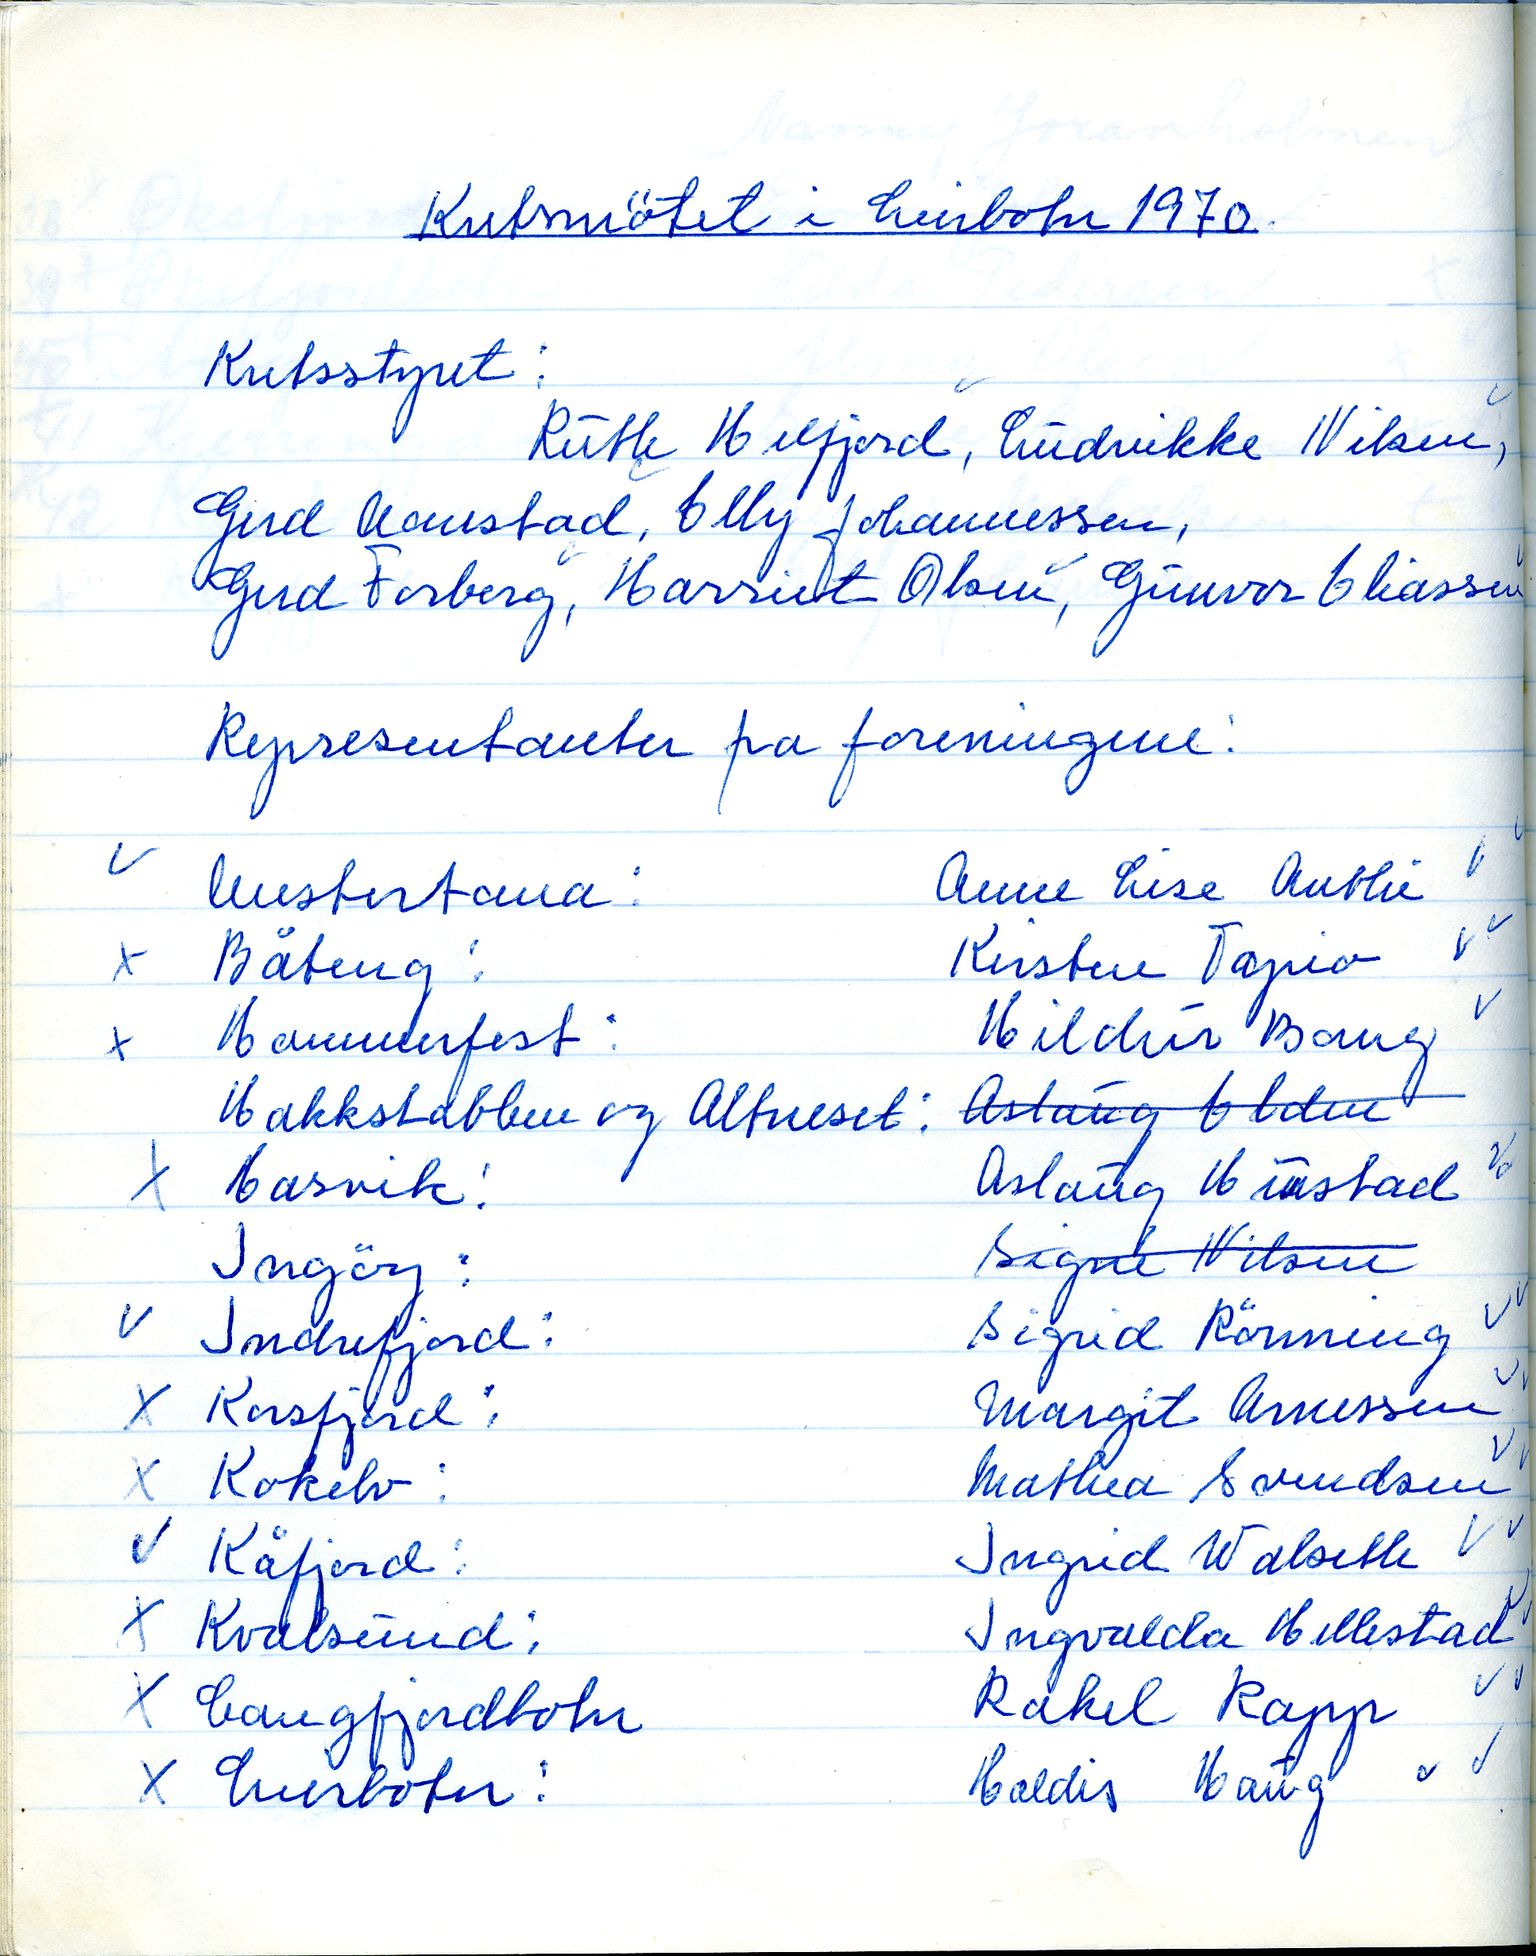 Kretsmötet i Leirbotn 1970.
Kretsstyret:
Ruth Melfjord, Ludvikke Nilsen,
Gerd Aanestad, Elly Johannessen,
Gerd Forberg, Harriet Olsen, Gunvor Eliassen
Representanter fra foreningene:
✓ Austertana: Anne Lise Authie ✓
x Båteng: Kirsten Tapio ✓✓
x Hammerfest: Hildur Bang ✓
Hakkstabben og Altneset: Aslaug Elden
x Hasvik: Aslaug Mustad
Ingöy: Signe Nilsen
✓ Indrefjord: Sigrid Rönning ✓✓
x Korsfjord: Margit Arnessen ✓✓
x Kokelv: Mathea Svendsen ✓✓
✓ Kåfjord: Ingrid Walseth ✓✓
x Kvalsund: Ingvalda Hellestad ✓
x Langfjordbotn Rakel Rapp ✓✓
x Leirbotn: Haldis Haug ✓✓